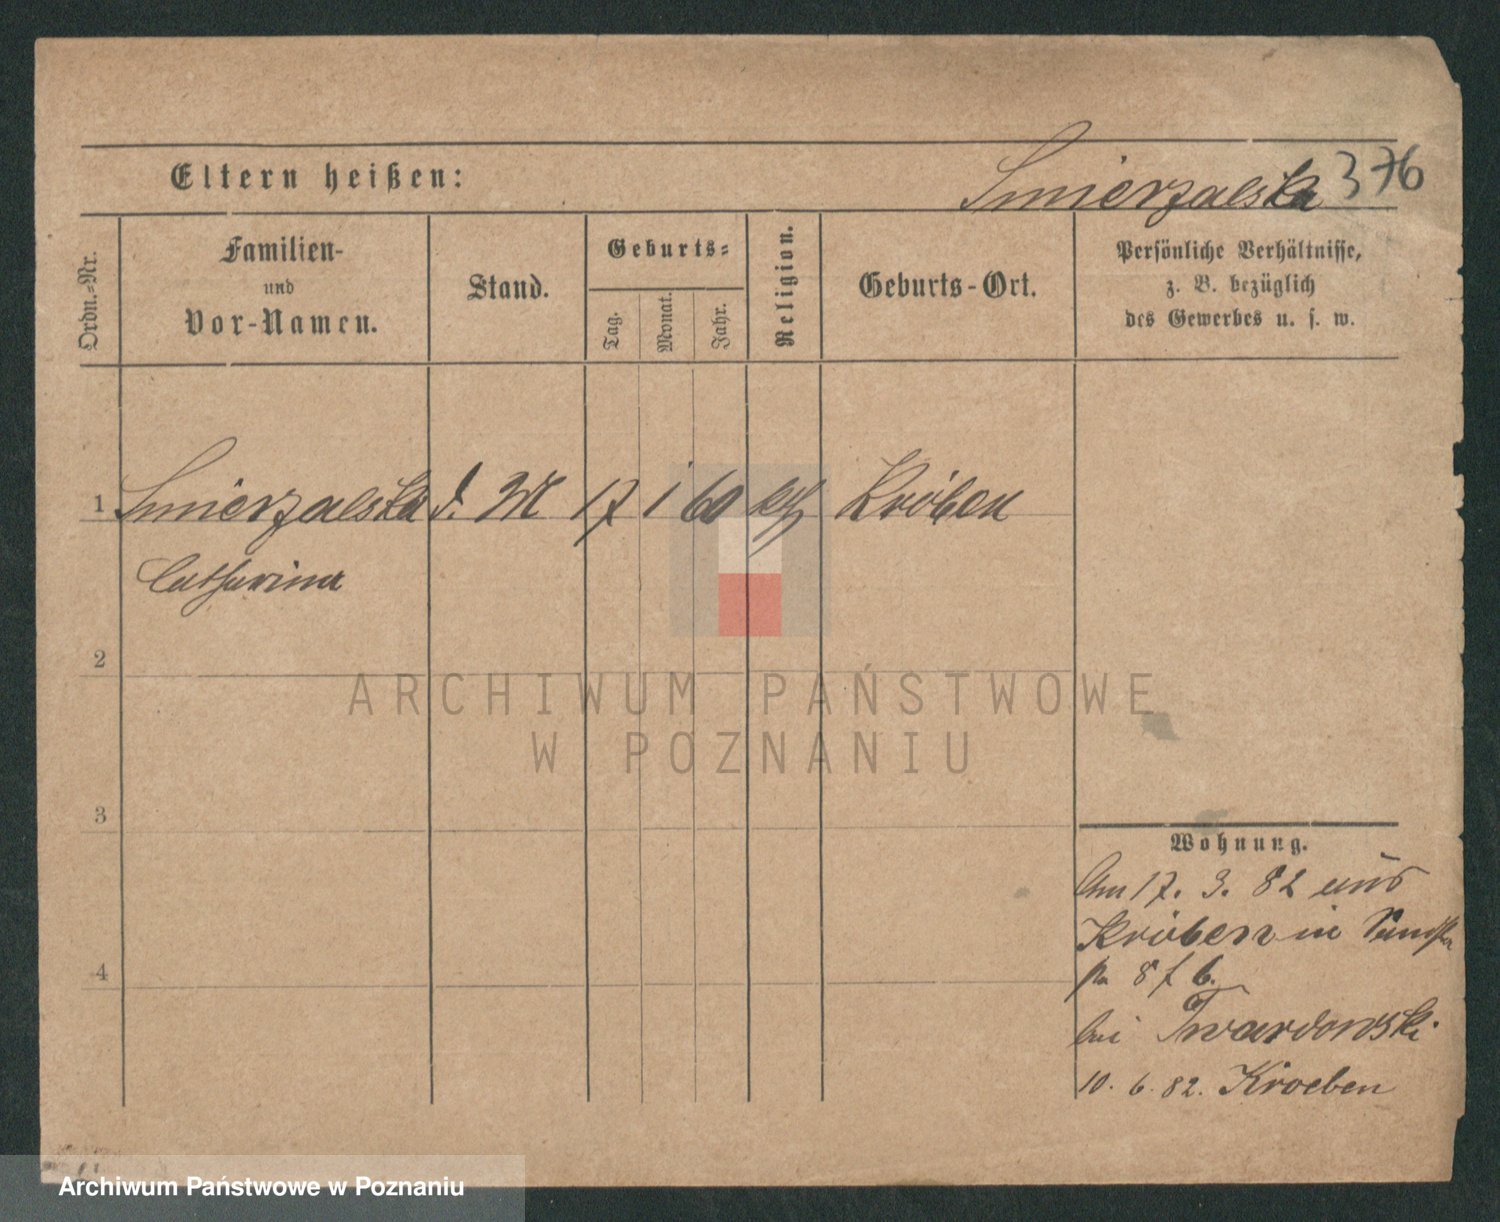 Eltern heißen:
Smierzalska 376
Ordn.-Nr.
Familien-
und
Vor-Namen.
Stand.
Geburts-
Tag.
Monat.
Jahr.
Religion.
Geburts-Ort.
Persönliche Verhältnisse,
z. B. bezüglich
des Gewerbes u. s. w.
1 Smierzalska d. M 17 1 60 kth Kröben
Catharina
2
3
4
ARCHIWUM PAŃSTWOWE
W POZNANIU
Wohnung.
Am 17. 3. 82 aus
Kröben in
8 f 6.
bei Twardowski
10. 6. 82. Kroeben
Archiwum Państwowe w Poznaniu